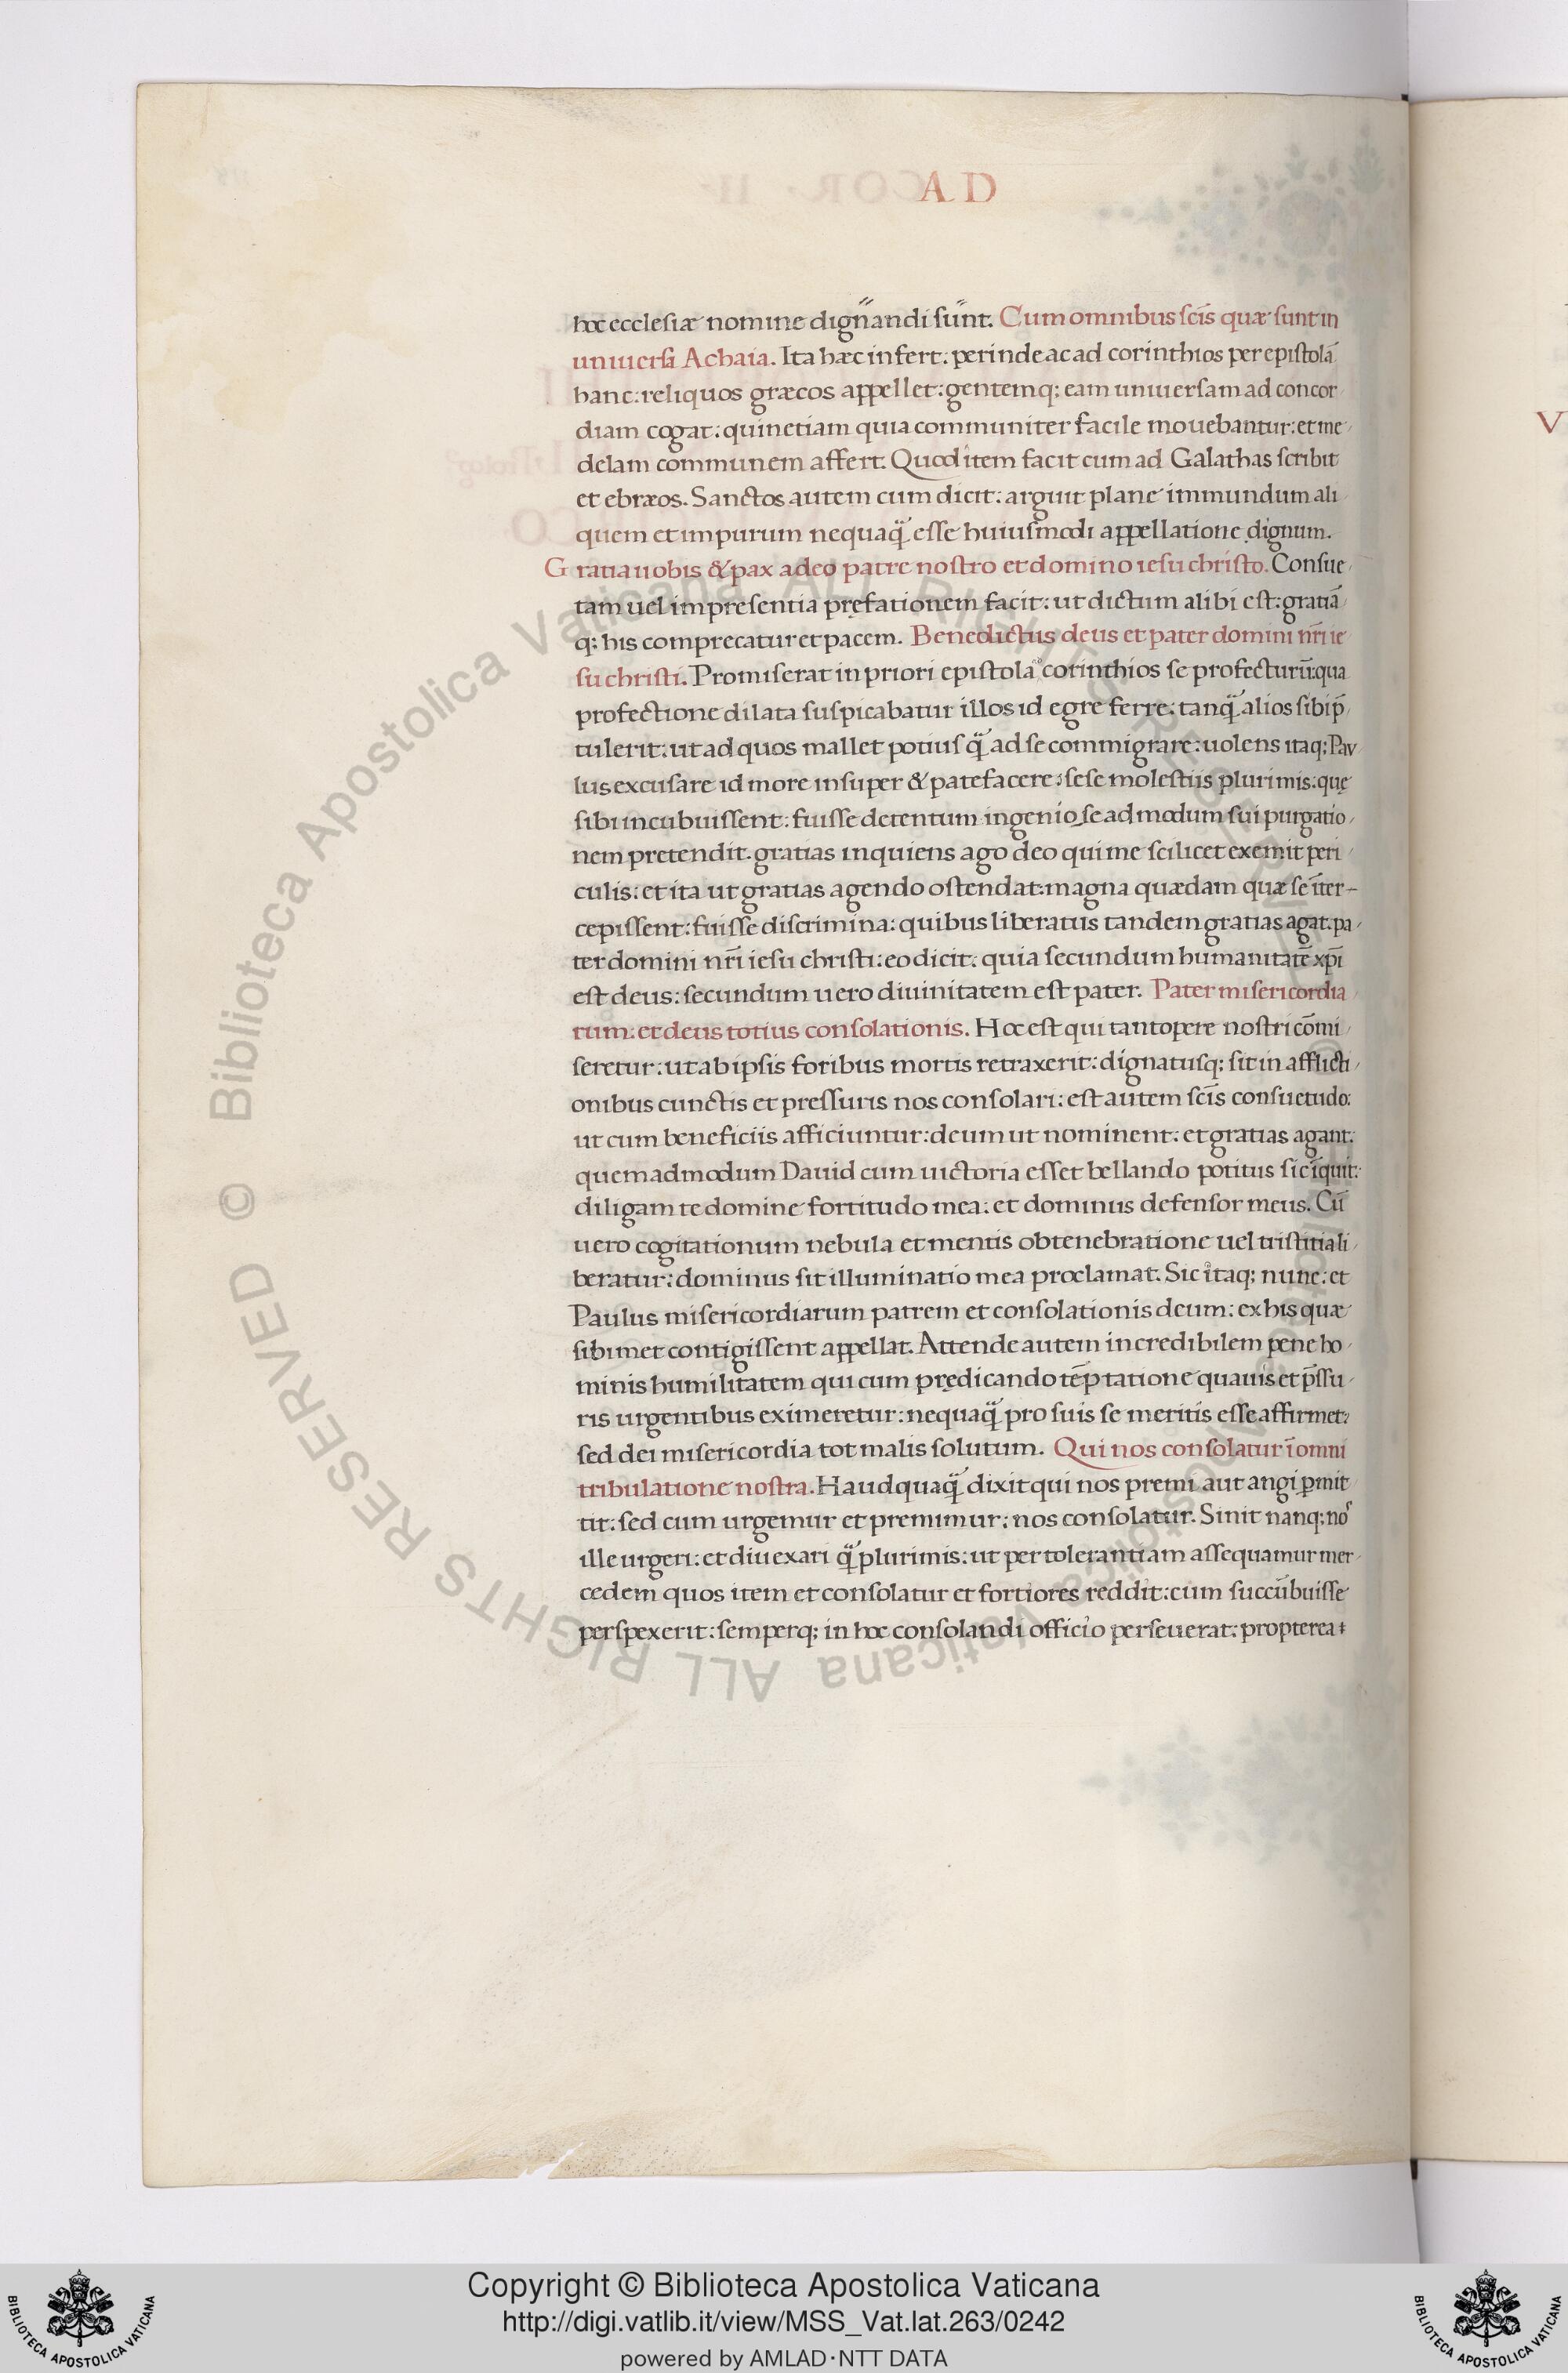 AD
hoc ecclesiæ nomine dign̄andi sūnt. Cum omnibus sc̄is quæ sunt in
uniuersa Achaia. Ita hæc infert: perinde ac ad corinthios per epistolā
hanc: reliquos græcos appellet: gentemq; eam uniuersam ad concor
diam cogat: quinetiam quia communiter facile mouebantur: et me
delam communem affert. Quod item facit cum ad Galathas scribit
et ebræos. Sanctos autem cum dicit: arguit plane immundum ali
quem et impurum nequaq̈ esse huiusmodi appellatione dignum.
Gratia uobis & pax a deo patre nostro et domino iesu christo. Consue
tam uel impresentia pręfationem facit: ut dictum alibi est: gratiā
q; his comprecatur et pacem. Benedictus deus et pater domini nr̄i ie
su christi. Promiserat in priori epistola corinthios se profecturū: qua
profectione dilata suspicabatur illos id egre ferre: tanq̈ alios sibi p̄
tulerit: ut ad quos mallet potius q̈ ad se commigrare: uolens itaq; Pau
lus excusare id more insuper & patefacere: sese molestiis plurimis: quę
sibi incubuissent: fuisse detentum ingenio se admodum sui purgatio
nem pretendit. gratias inquiens ago deo qui me scilicet exemit peri
culis: et ita ut gratias agendo ostendat: magna quædam quæ se īter-
cepissent: fuisse discrimina: quibus liberatus tandem gratias agat: pa
ter domini nr̄i iesu christi: eo dicit: quia secundum humanitatē xp̄i
est deus: secundum uero diuinitatem est pater. Pater misericordia
rum: et deus totius consolationis. Hoc est qui tantopere nostri cōmi
seretur: ut ab ipsis foribus mortis retraxerit: dignatusq; sit in afflicti
onibus cunctis et pressuris nos consolari: est autem sc̄is consuetudo:
ut cum beneficiis afficiuntur: deum ut nominent: et gratias agant:
quemadmodum Dauid cum uictoria esset bellando potitus sic īquit:
diligam te domine fortitudo mea: et dominus defensor meus. Cū
uero cogitationum nebula et mentis obtenebratione uel tristitia li
beratur: dominus sit illuminatio mea proclamat. Sic itaq; nunc: et
Paulus misericordiarum patrem et consolationis deum: ex his quæ
sibimet contigissent appellat. Attende autem incredibilem pene ho
minis humilitatem qui cum prędicando tēptatione quauis et p̄ssu
ris urgentibus eximeretur: nequaq̈ pro suis se meritis esse affirmet:
sed dei misericordia tot malis solutum. Qui nos consolatur ī omni
tribulatione nostra. Haudquaq̈ dixit qui nos premi aut angi ꝑmit
tit: sed cum urgemur et premimur: nos consolatur. Sinit nanq; nos
ille urgeri: et diuexari q̈ plurimis: ut per tolerantiam assequamur mer
cedem quos item et consolatur et fortiores reddit: cum succūbuisse
perspexerit: semperq; in hoc consolandi officio perseuerat: propterea
Copyright © Biblioteca Apostolica Vaticana
http://digi.vatlib.it/view/MSS_Vat.lat.263/0242
powered by AMLAD·NTT DATA
© Biblioteca Apostolica Vaticana ALL RIGHTS RESERVED
© Biblioteca Apostolica Vaticana ALL RIGHTS RESERVED
BIBLIOTECA APOSTOLICA VATICANA
BIBLIOTECA APOSTOLICA VATICANA